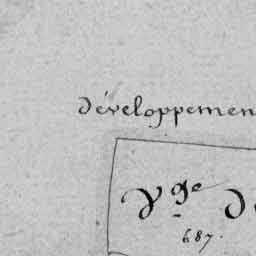 développemen
Vge d
687.